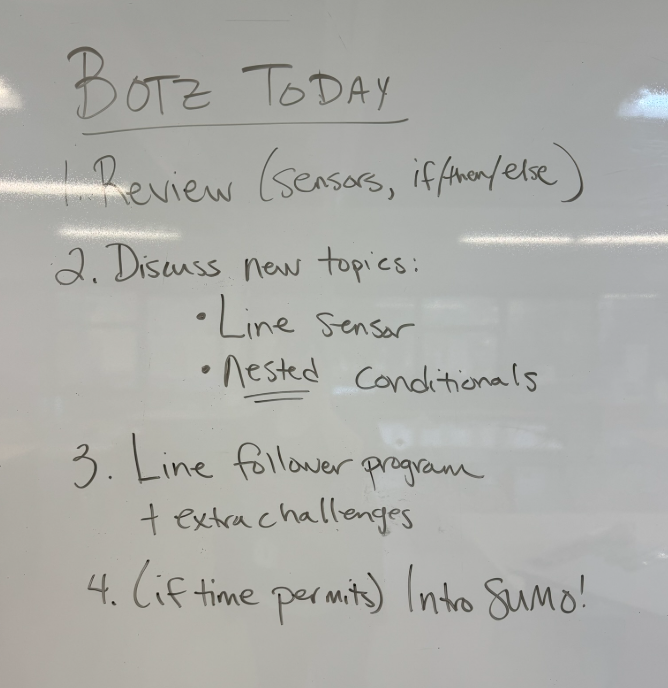 BOTZ TODAY
1. Review (sensors, if/then/else)
2. Discuss new topics:
• Line sensor
• Nested conditionals
3. Line follower program
+ extra challenges
4. (if time permits) Intro SUMO!